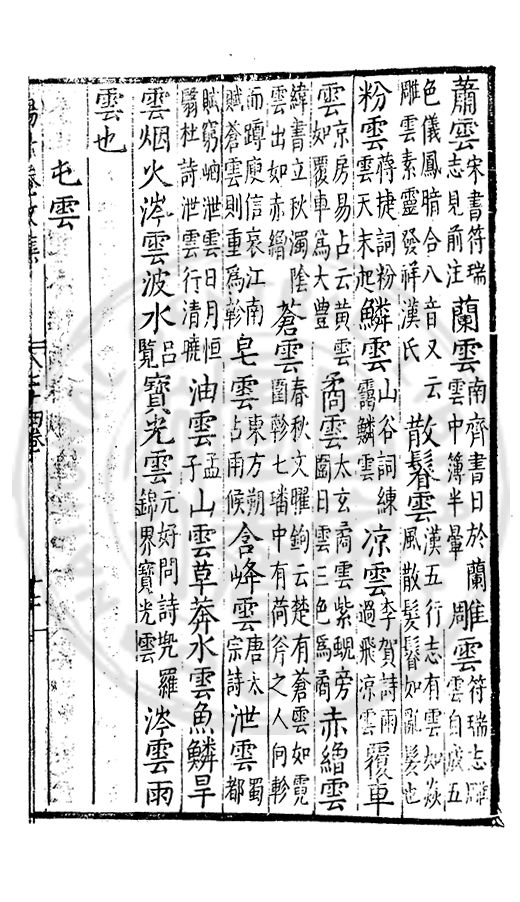 蕭雲宋書符瑞志見前注蘭雲南齊書日於蘭雲中簿半暈雕雲符瑞志雕雲自成五
色儀鳳暗合八音又云雕雲素靈發祥漢氏散鬊雲漢五行志有雲如焱風散髮鬊如亂髮也
粉雲蔣捷詞粉雲天末起鱗雲山谷詞練靄鱗雲涼雲李賀詩雨過飛涼雲覆車
雲京房易占云黃雲如覆車為大豊矞雲太玄矞雲紫蜺旁圍日雲三色為矞赤繒雲
緯書立秋濁陰雲出如赤繒蒼雲春秋文曜鉤云楚有蒼雲如霓圍軫七蟠中有荷斧之人向軫
而蹲庾信哀江南賦蒼雲則重為軫皂雲東方朔占雨候含峰雲唐太宗詩泄雲蜀都
賦窮岫泄雲日月恒翳杜詩泄雲行清曉油雲孟子山雲草莽水雲魚鱗旱
雲烟火涔雲波水呂覽寶光雲元好問詩兜羅錦界寶光雲涔雲雨
雲也
屯雲